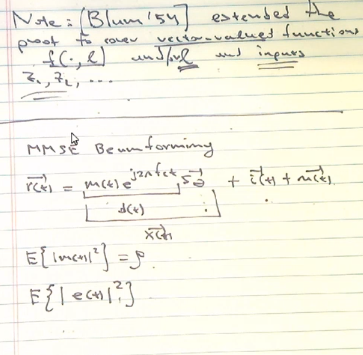 Note: [Blum '54] extended the
proof to cover vector-valued functions
f(·, l) and/or l and inputs
z₁, z₂, ...
MMSE Beamforming
r⃗(t) = m(t) e^{j2πf_c t} s⃗_d + i⃗(t) + n⃗(t)
d(t)
x⃗(t)
E{|m(t)|²} = ρ
E{|e(t)|²}